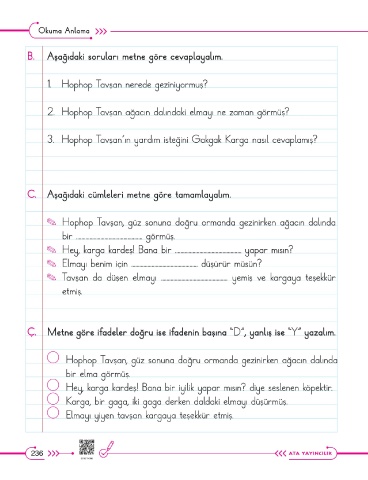 Okuma Anlama
B. Aşağıdaki soruları metne göre cevaplayalım.
1. Hophop Tavşan nerede geziniyormuş?
2. Hophop Tavşan ağacın dalındaki elmayı ne zaman görmüş?
3. Hophop Tavşan'ın yardım isteğini Gakgak Karga nasıl cevaplamış?
C. Aşağıdaki cümleleri metne göre tamamlayalım.
Hophop Tavşan, güz sonuna doğru ormanda gezinirken ağacın dalında
bir .............................. görmüş.
Hey, karga kardeş! Bana bir .............................. yapar mısın?
Elmayı benim için .............................. düşürür müsün?
Tavşan da düşen elmayı .............................. yemiş ve kargaya teşekkür
etmiş.
Ç. Metne göre ifadeler doğru ise ifadenin başına "D", yanlış ise "Y" yazalım.
Hophop Tavşan, güz sonuna doğru ormanda gezinirken ağacın dalında
bir elma görmüş.
Hey, karga kardeş! Bana bir iyilik yapar mısın? diye seslenen köpektir.
Karga, bir gaga, iki gaga derken daldaki elmayı düşürmüş.
Elmayı yiyen tavşan kargaya teşekkür etmiş.
236
ATA YAYINCILIK